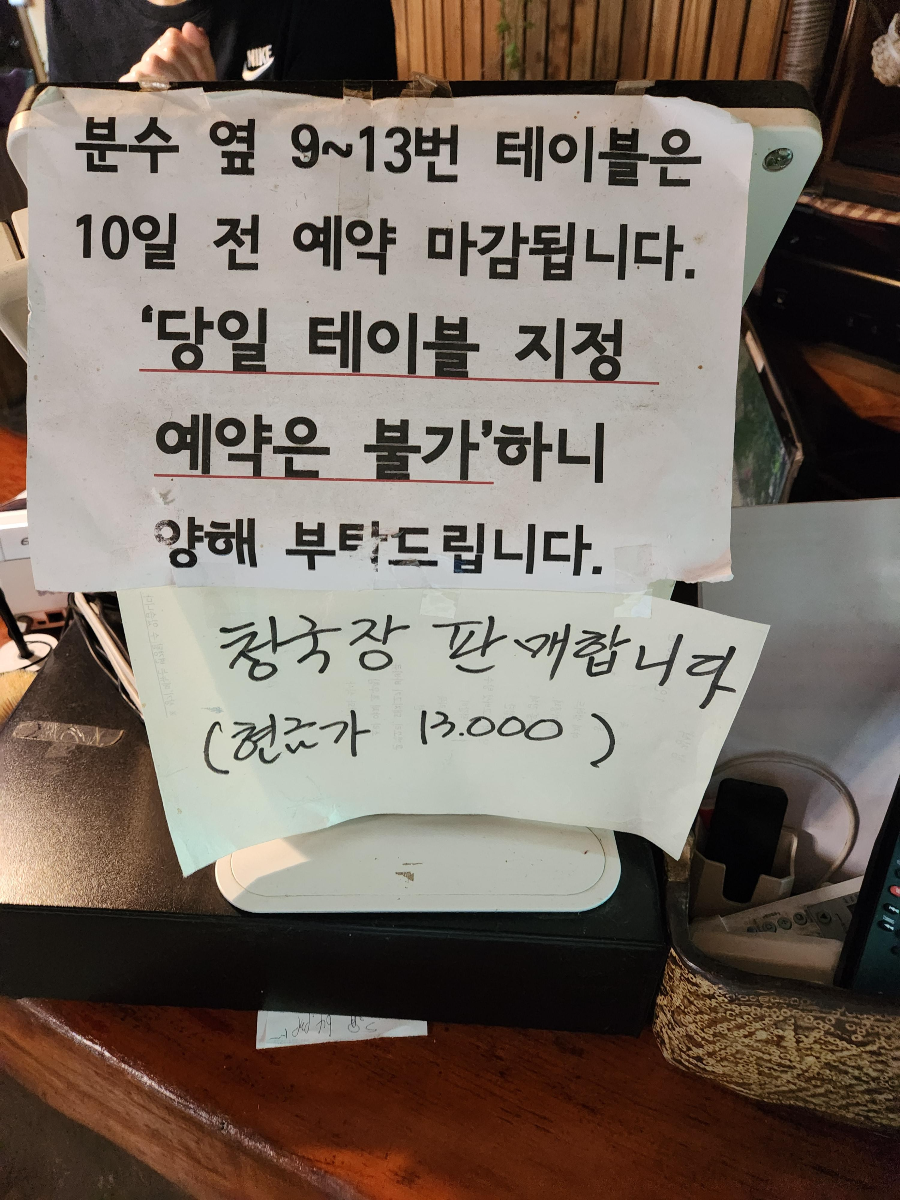 NIKE
분수 옆 9~13번 테이블은
10일 전 예약 마감됩니다.
‘당일 테이블 지정
예약은 불가’하니
양해 부탁드립니다.
청국장 판매합니다
(현금가 13.000)